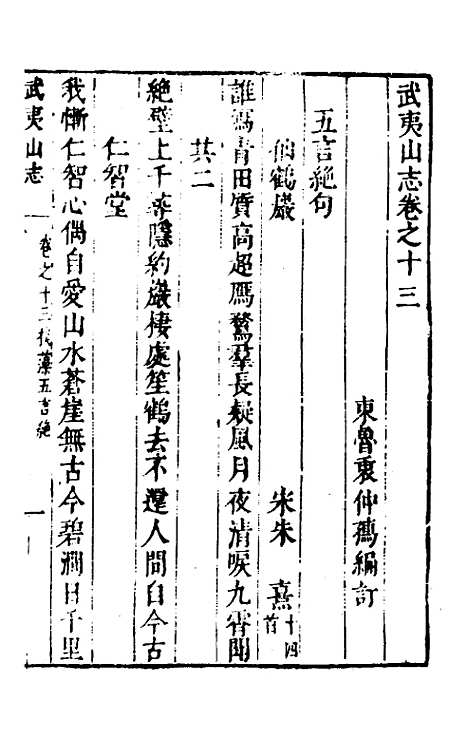 武夷山志卷之十三
東魯衷仲孺編訂
五言絕句
仙鶴巖 宋朱熹十四首
誰寫青田質高超鴈鶩羣長疑風月夜清唳九霄聞
其二
絕壁上千尋隱約巖棲處笙鶴去不還人間自今古
仁智堂
我慚仁智心偶自愛山水蒼崖無古今碧澗日千里
武夷山志 卷之十三 摛藻五言絕 一